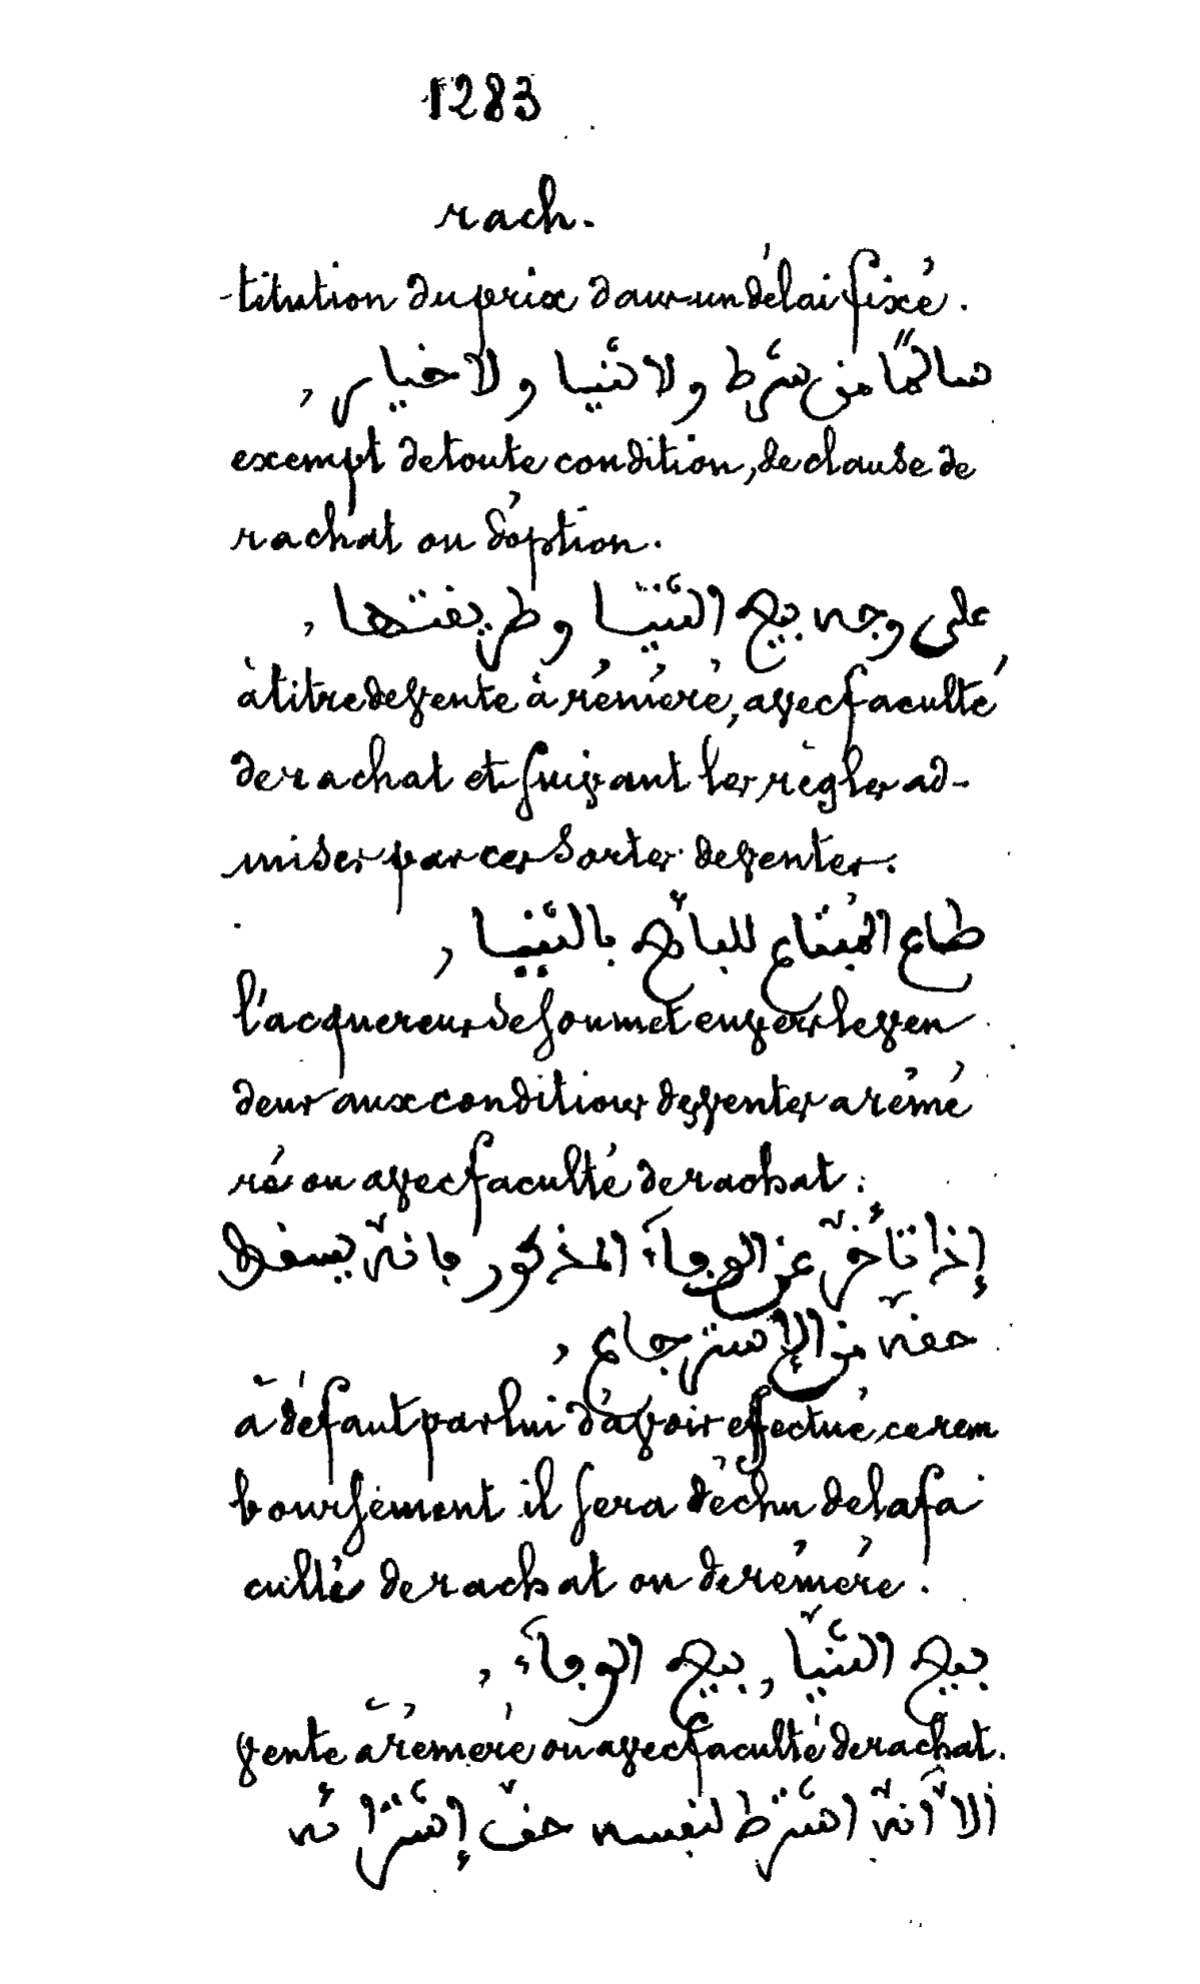 1283
rach.
-titution du prix dans un délai fixé.
سالمًا من شرط ولا ثنيا ولا خيار,
exempt de toute condition, de clause de
rachat ou d'option.
على وجه بيع الثنيا وطريفتها,
à titre de vente à réméré, avec faculté
de rachat et suivant les règles ad-
mises par ces sortes de ventes.
طاع المُبتاع للبائع بالثنيا,
l'acquereur se soumet envers le ven
deur aux conditions des ventes a rémé
ré ou avec faculté de rachat.
إذا تأخّر عن الوفاء المذكور فانّه يسفط
حفّه من الإسترجاع,
à défaut par lui d'avoir effectué ce rem
boursement il sera déchu de la fa
culté de rachat ou de réméré.
بيع الثنيّا, بيع الوفاء,
vente à réméré ou avec faculté de rachat.
الا أنّه اشترط لنفسه حفّ إشترائه